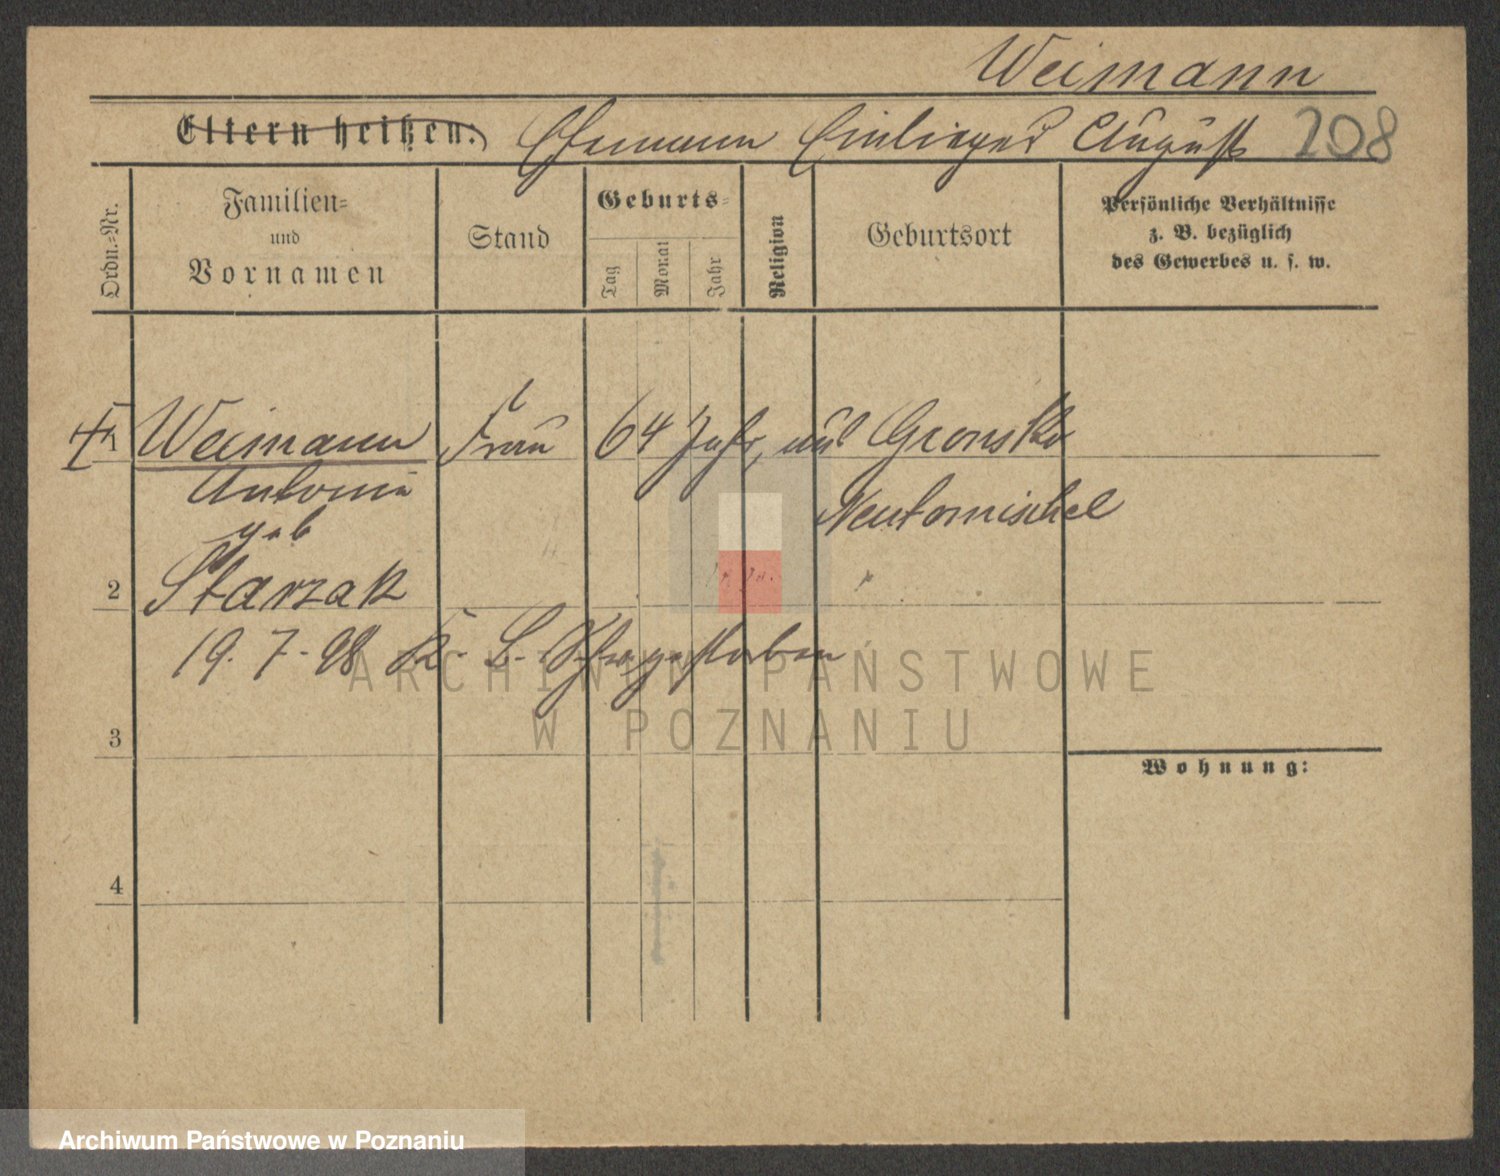 Weimann
Eltern heißen: Ehemann Einlieger August 208
Ordn.-Nr.
Familien=
und
Vornamen
Stand
Geburts=
Tag
Monat
Jahr
Religion
Geburtsort
Persönliche Verhältnisse
z. B. bezüglich
des Gewerbes u. s. w.
Weimann Frau 64 Jahr, aus Gronsko
Antonie Neutomischel
geb
2 Starzak
19. 7. 98 K. L. gestorben
3
Wohnung:
4
ARCHIWUM PAŃSTWOWE
W POZNANIU
Archiwum Państwowe w Poznaniu